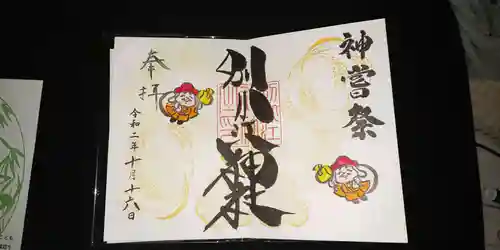 神嘗祭
別小江神社
奉拝
令和二年十月十六日